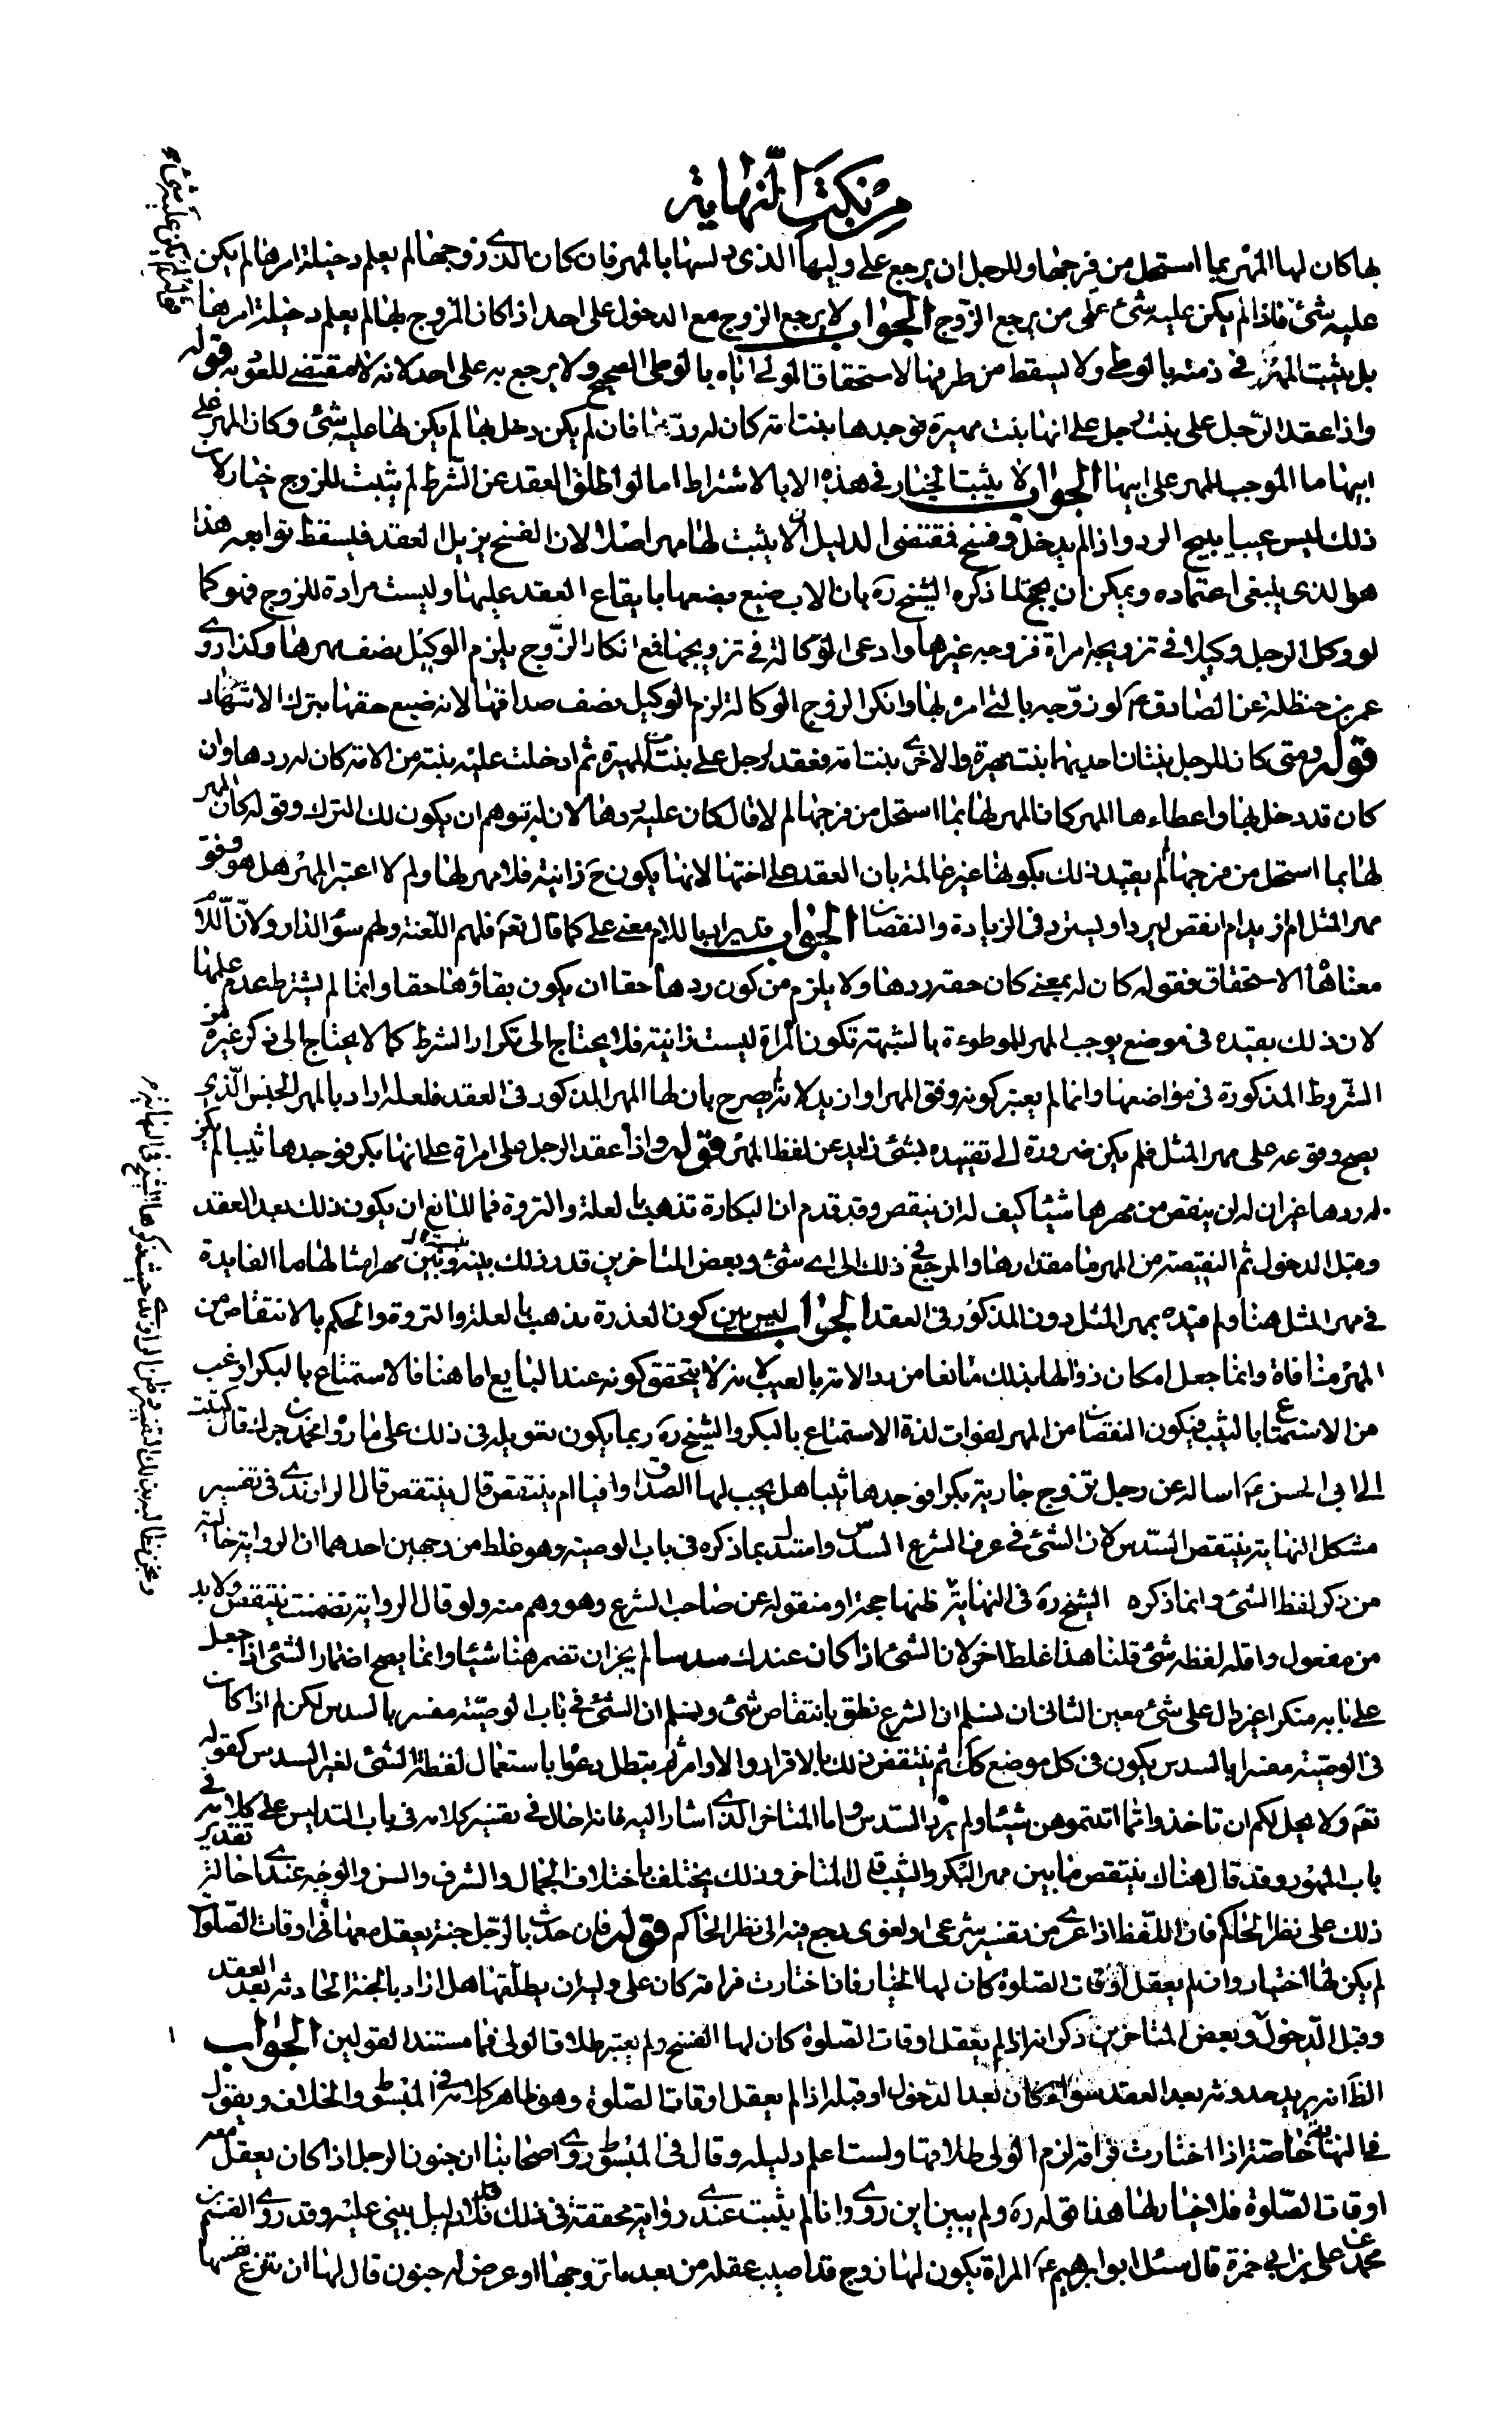 من نكت النهاية
بها كان لها المهر بما استحل من فرجها وللرجل ان يرجع على وليها الذى دلسها بالمهر فان كان الذي زوجها لم يعلم دخيلة امرها لم يكن
عليه شئ فاذا لم يكن عليه شئ على من يرجع الزوج الجواب لا يرجع الزوج مع الدخول على احد اذا كان المزوج لها لم يعلم دخيلة امرها
بل يثبت المهر في ذمته بالوطى ولا يسقط من طرفها لاستحقاق المولى اياه بالوطى الصحيح ولا يرجع به على احد لانه لا مقتضى للعود به قوله
واذا عقد الرجل على بنت رجل على انها بنت مهيرة فوجدها بنت امة كان له ردها فان لم يكن دخل بها لم يكن لها عليه شئ وكان المهر على
ابيها ما الموجب للمهر على ابيها الجواب لا يثبت الخيار في هذه الا بالاشتراط اما لو اطلق العقد عن الشرط لم يثبت للزوج خيار لان
ذلك ليس عيبا يبيح الرد واذا لم يدخل وفسخ فمقتضى الدليل ان لا يثبت لها مهر اصلا لان الفسخ يزيل العقد فيسقط توابعه هذا
هو الذى ينبغى اعتماده ويمكن ان يحتج لما ذكره الشيخ ره بان الاب ضيع بضعها بايقاع العقد عليها وليست مرادة للزوج فهو كما
لو وكل الرجل وكيلا في تزويجه امراة فزوجه غيرها وادعى الوكالة في تزويجها فمع انكار الزوج يلزم الوكيل نصف مهرها وكذا روى
عمر بن حنظلة عن الصادق ع لو زوجه بالتى امره بها وانكر الزوج الوكالة لزم الوكيل نصف صداقها لانه ضيع حقها بترك الاشهاد
قوله ومتى كان للرجل بنتان احديهما بنت مهيرة والاخرى بنت امة فعقد لرجل على بنت المهيرة ثم ادخلت عليه بنته من الامة كان له ردها وان
كان قد دخل بها واعطاءها المهر كان المهر لها بما استحل من فرجها لم لا قال كان عليه ردها لان له توهم ان يكون لك الترك وقوله كان المهر
لها بما استحل من فرجها لم يقيد ذلك بكونها غير عالمة بان العقد على اختها لانها يكون ح زانية فلا مهر لها ولم لا اعتبر المهر هل هو وفق
مهر المثل ام ازيد ام انقص ليرد او يسترد في الزيادة والنقصان الجواب قد يراد باللام معنى على كما قال تعم فلهم اللعنة ولهم سوء الدار ولان اللام
معناها الاستحقاق فقوله كان له بمعنى كان حقه ردها ولا يلزم من كون ردها حقا ان يكون بقاؤها حقا وانما لم يشترط عدم علمها
لان ذلك يقيده في موضع يوجب المهر للموطوءة بالشبهة تكون المراة ليست زانية فلا يحتاج الى تكرار الشرط كما لا يحتاج الى ذكر غيره من
الشروط المذكورة في مواضعها وانما لم يعتبر كونه وفق المهر او ازيد لانه لم يصرح بان لها المهر المذكور في العقد فلعله اراد بالمهر الجنس الذى
يصح وقوعه على مهر المثل فلم يكن ضرورة الى تقييده بشئ زايد عن لفظ المهر قوله واذا عقد الرجل على امراة على انها بكر فوجدها ثيبا لم يكن
له ردها غير ان له ان ينقص من مهرها شيئا كيف له ان ينقص وقد قدم ان البكارة تذهب بالعلة والنزوة فما المانع ان يكون ذلك بعد العقد
وقبل الدخول ثم النقيصة من المهر ما مقدارها والمرجع في ذلك الى اى شئ وبعض المتاخرين قدر ذلك بينه وبين مهر امثالها ما الفايدة
في مهر المثل هنا ولم قيده بمهر المثل دون المذكور في العقد الجواب ليس بين كون العذرة تذهب بالعلة والنزوة والحكم بالانتقاص من
المهر منافاة وانما جعل امكان ذوالها بذلك مانعا من رد الامة بالعيب لانه لا يتحقق كونه عند البايع اما هنا فالاستمتاع بالبكر ارغب
من الاستمتاع بالثيب فيكون النقصان من المهر لفوات لذة الاستمتاع بالبكر والشيخ ره ربما يكون تعويله في ذلك على ما رواه محمد بن جزك قال كتبت
الى ابى الحسن ع اساله عن رجل تزوج جارية بكرا فوجدها ثيبا هل يجب لها الصداق وافيا ام ينتقص قال ينتقص قال الراوندى في تفسير
مشكل النهاية ينتقص السدس لان الشئ في عرف الشرع السدس واستدل بما ذكره في باب الوصية وهو غلط من وجهين احدهما ان الرواية خالية
من ذكر لفظ الشئ وانما ذكره الشيخ ره في النهاية ظنها حجة او منقوله عن صاحب الشرع وهو وهم منه ولو قال الرواية تضمنت ينتقص ولا بد
من مفعول واقله لفظه شئ قلنا هذا غلط اخر لان الشئ اذا كان عندك سدسا لم يجز ان تضمر هنا شيئا وانما يصح اضمار الشئ اذا جعل
على بابه منكرا غير دال على شئ معين الثانى ان نسلم ان الشرع نطق بانتقاص شئ ونسلم ان الشئ في باب الوصية مفسر بالسدس لكن لم اذا كان
في الوصية مفسرا بالسدس يكون في كل موضع كك ثم ينتقض ذلك بالاقرار والاوامر ثم يبطل دعواه باستعمال لفظة الشئ لغير السدس كقوله
تعم ولا يحل لكم ان تاخذوا مما اتيتموهن شيئا ولم يرد السدس واما المتاخر الذى اشار اليه فانه احال في تفسير كلامه في باب التدليس على كلامه في
باب المهور وقد قال هناك ينتقص ما بين مهر البكر والثيب قال المتاخر وذلك يختلف باختلاف الجمال والشرف والسن والوجه عندى احالة تقدير
ذلك على نظر الحاكم فان اللفظ اذا عرى من تفسير شرعى او لغوى رجع فيه الى نظر الحاكم قوله فان حدث بالرجل جنة يعقل معها في اوقات الصلوة
لم يكن لها اختيار وان لم يعقل اوقات الصلوة كان لها الخيار فان اختارت فراقه كان على وليه ان يطلقها هل اراد بالجنة الحادثة بعد العقد
وقبل الدخول وبعض المتاخرين ذكر انه اذا لم يعقل اوقات الصلوة كان لها الفسخ ولم يعتبر طلاق الولى فما مستند القولين الجواب
الظ انه يريد حدوثه بعد العقد سواء كان بعد الدخول او قبله اذا لم يعقل اوقات الصلوة وهو ظاهر كلامه في المبسوط والخلاف ويقول
في النهاية خاصة اذا اختارت فراقه لزم الولى طلاقها ولست اعلم دليله وقال في المبسوط روى اصحابنا ان جنون الرجل اذا كان يعقل معه
اوقات الصلوة فلا خيار لها هذا قوله ره ولم يبين اين روى وانا لم يثبت عندى رواية محققة في ذلك فلا دليل يبنى عليه وقد روى القسم بن
محمد عن على بن ابى حمزة قال سئل ابو ابرهيم ع المراة يكون لها زوج قد اصيب عقله من بعد ما تزوجها او عرض له جنون قال لها ان تنزع نفسها